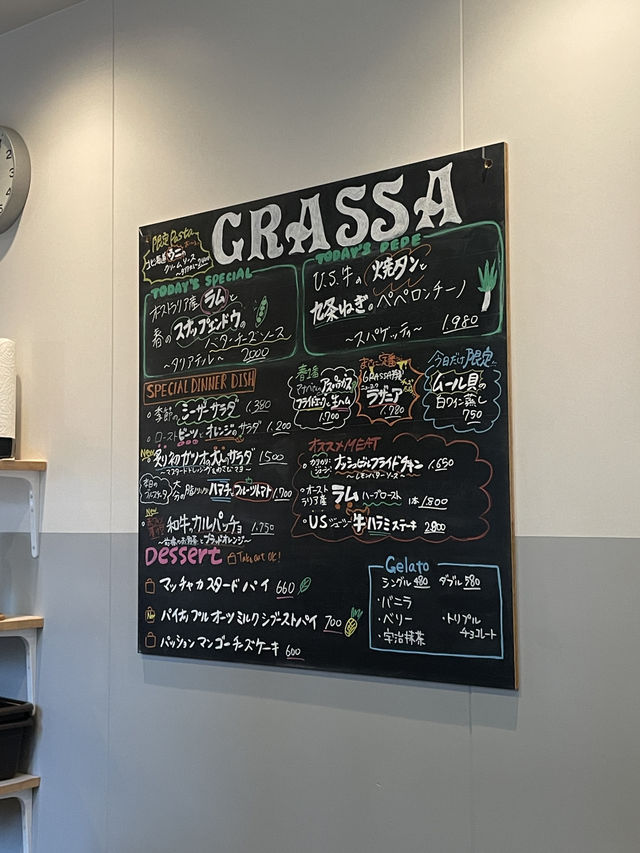 GRASSA
限定Pasta
北海道ウニの
クリームソース
TODAY'S SPECIAL
オーストラリア産 ラムと
春のスナップエンドウの
バターチーズソース
〜タリアテレ〜 2000
TODAY'S PEPE
U.S.牛の焼タンと
九条ねぎのペペロンチーノ
〜スパゲッティ〜 1980
SPECIAL DINNER DISH
季節のシーザーサラダ 1,380
ローストビーツとオレンジのサラダ 1,200
New 炙り初ガツオのサラダ 1,500
〜マスタードドレッシング
本日の
カルパッチョ
大分の ハマチとフルーツトマト 1,700
New
和牛のカルパッチョ 1,750
ブラッドオレンジ〜
春1番
アスパラガス
フライドエッグと生ハム
1,700
まさに定番!
GRASSA特製
ラザニア
1,780
今日だけ限定
ムール貝の
白ワイン蒸し
750
オススメMEAT
カリカリ
ジューシー
フライドチキン 1,650
〜レモンバターソース〜
オースト
ラリア産
ラム ハーブロースト 1本1800
US 牛ハラミステーキ 2,800
Dessert Take out OK!
マッチャカスタードパイ 660
New パイナップルオーツミルクシブーストパイ 700
パッションマンゴーチーズケーキ 600
Gelato
シングル 480 ダブル 580
・バニラ
・ベリー
・宇治抹茶
・トリプル
チョコレート
2
3
4
5